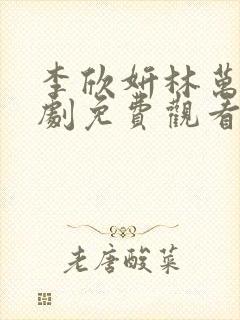 李欣妍林萬
劇免費觀看
老唐酸菜